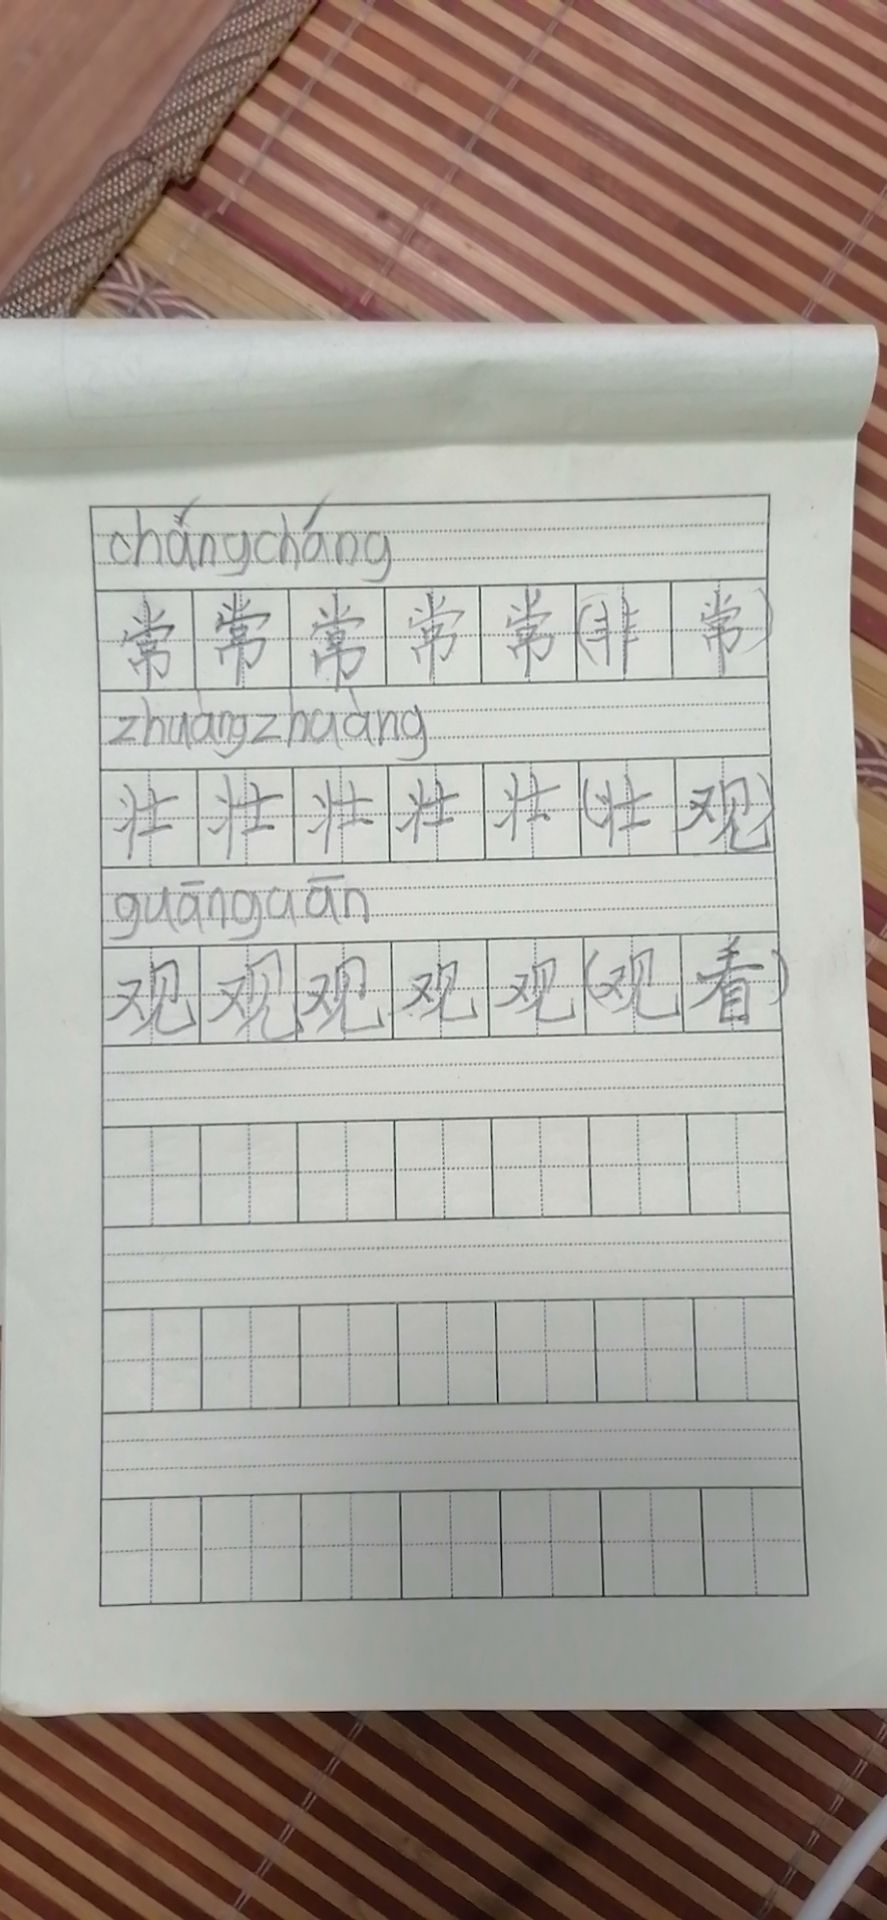 chángcháng
常常常常常(非常)
zhuàngzhuàng
壮壮壮壮壮(壮观)
guānguān
观观观观观(观看)